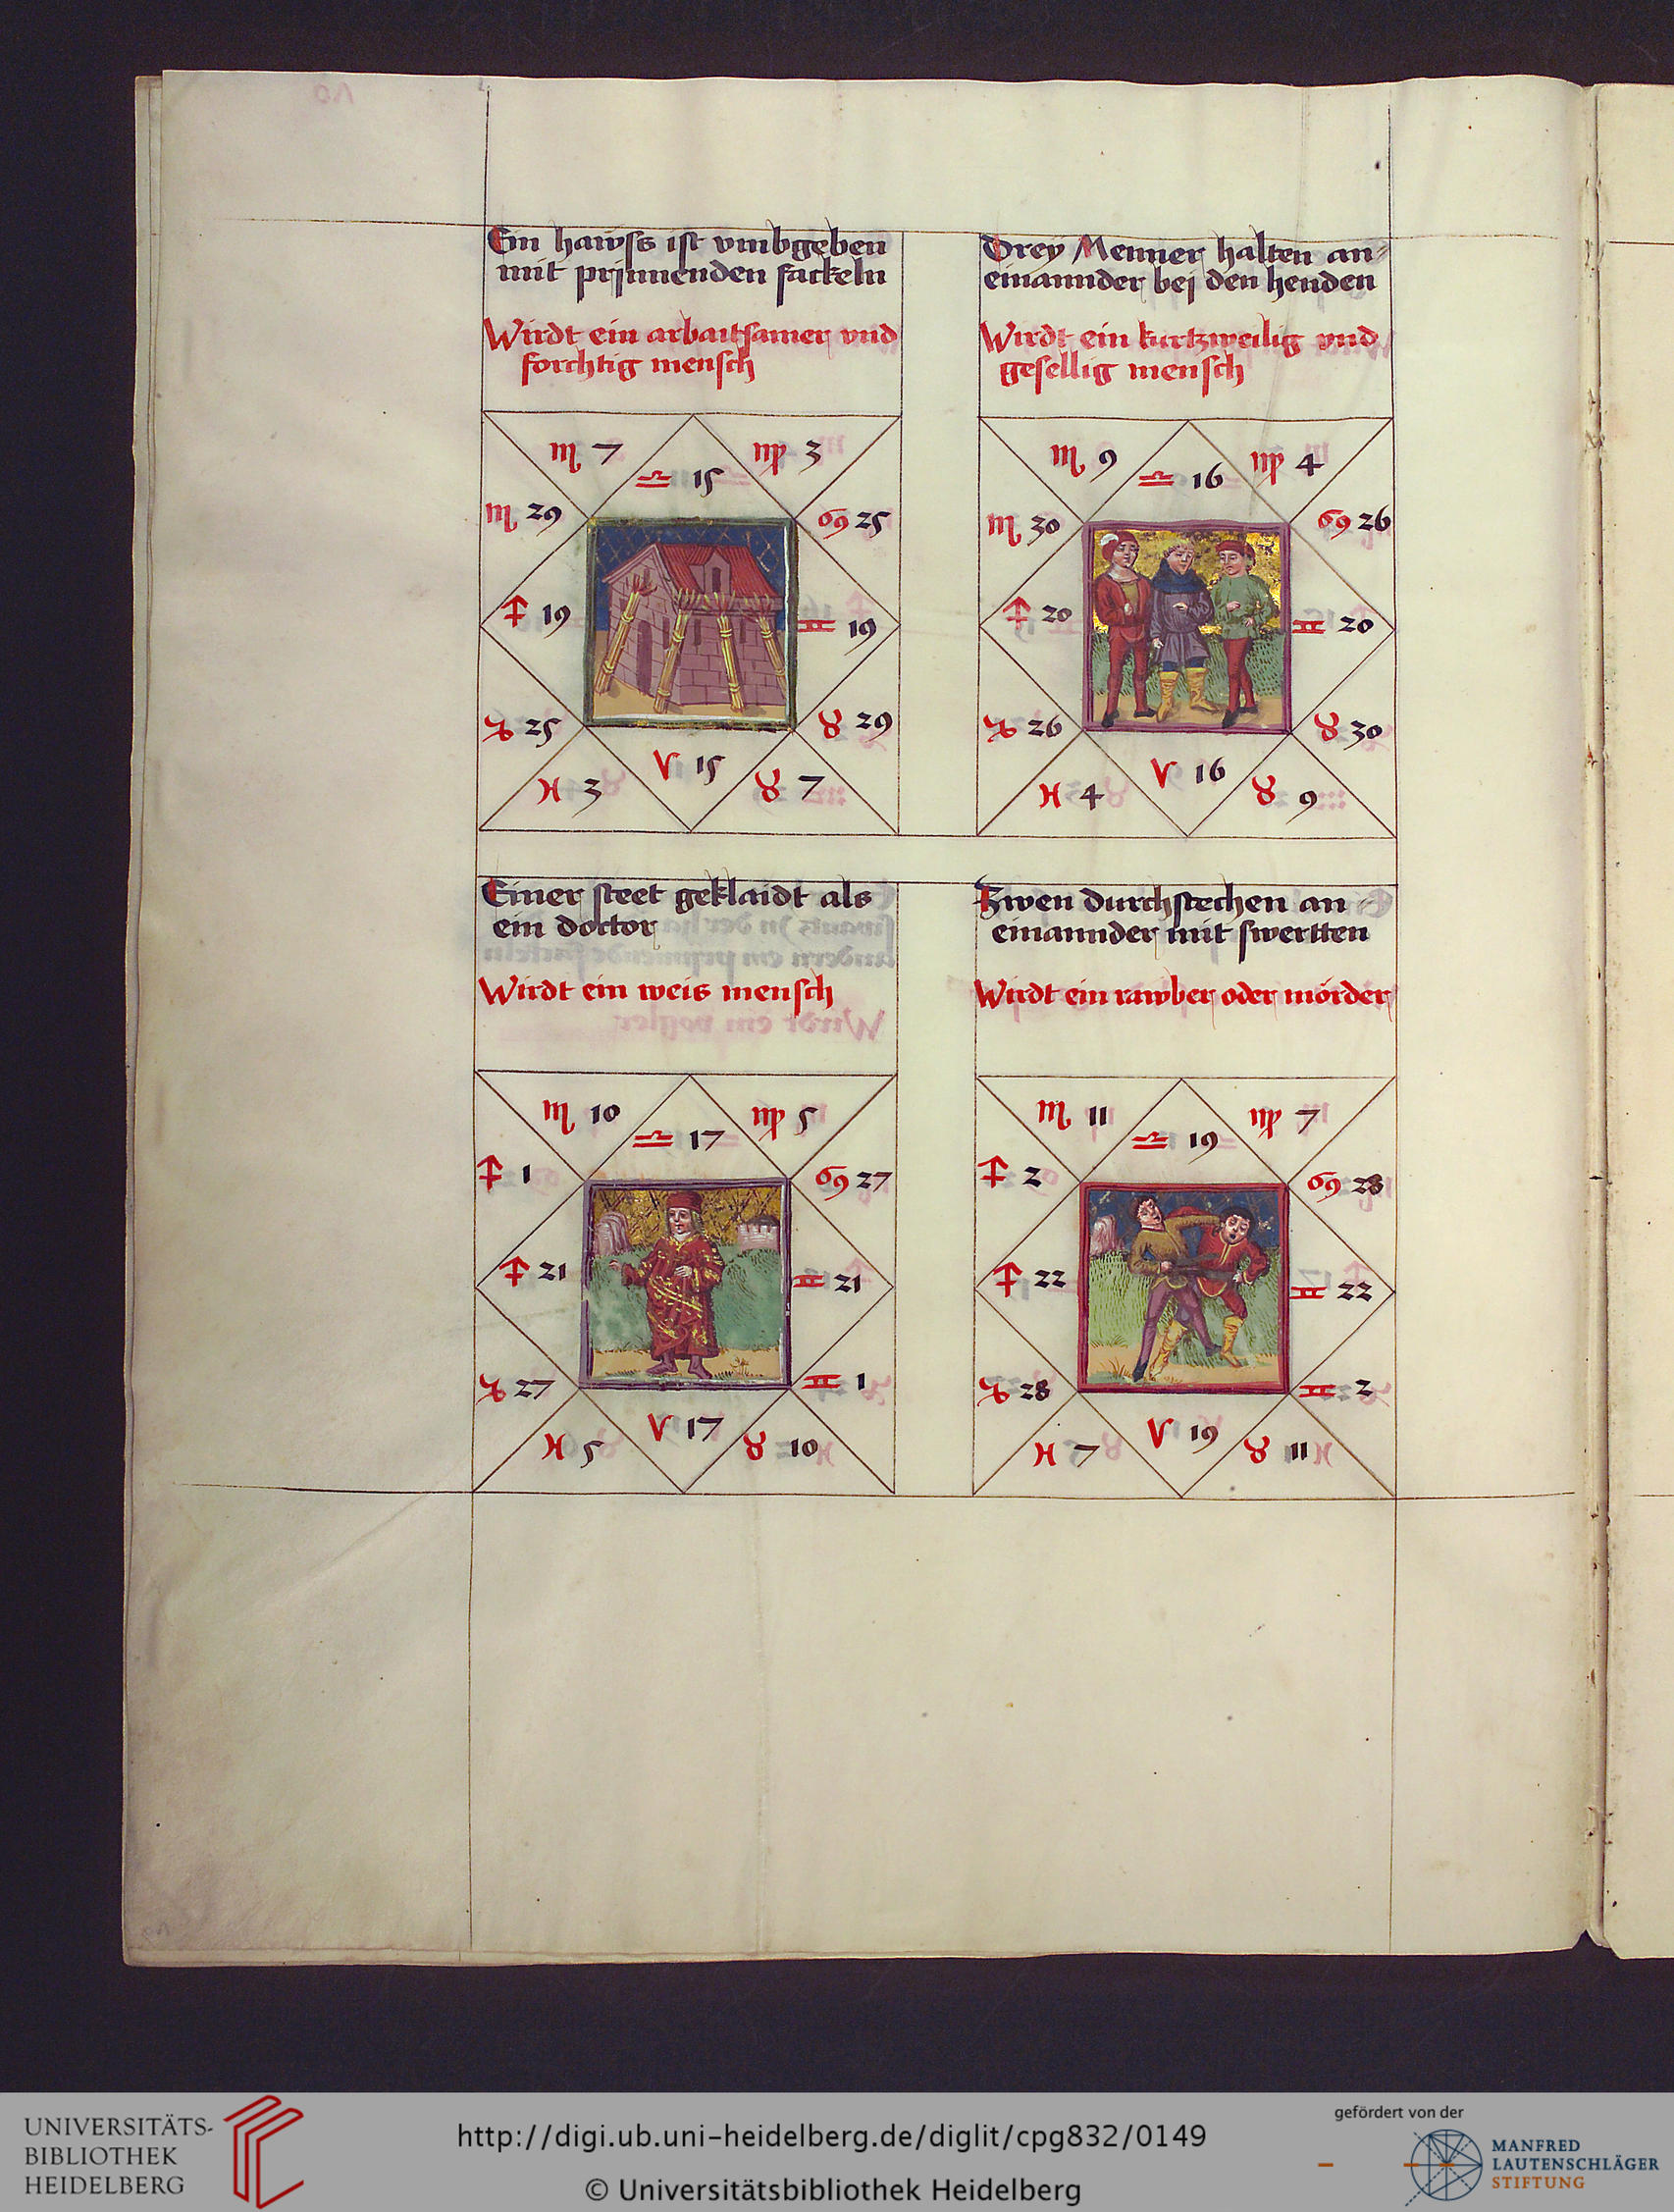 Ein hawss ist vmbgeben
mit prinnenden fackeln
Wirdt ein arbaitsamer vnd
forchtig mensch
♏ 7
♎ 15
♍ 3
♏ 29
♋ 25
♐ 19
♊ 19
♑ 25
♉ 29
♓ 3
♈ 15
♉ 7
Drey Menner halten an=
einannder bej den henden
Wirdt ein kurtzweilig vnd
gesellig mensch
♏ 9
♎ 16
♍ 4
♏ 30
♋ 26
♐ 20
♊ 20
♑ 26
♉ 30
♓ 4
♈ 16
♉ 9
Einer steet geklaidt als
ein doctor
Wirdt ein weis mensch
♏ 10
♎ 17
♍ 5
♐ 1
♋ 27
♐ 21
♊ 21
♑ 27
♊ 1
♓ 5
♈ 17
♉ 10
Zwen durchstechen an=
einannder mit swertten
Wirdt ein rawber oder mörder
♏ 11
♎ 19
♍ 7
♐ 2
♋ 28
♐ 22
♊ 22
♑ 28
♊ 2
♓ 7
♈ 19
♉ 11
UNIVERSITÄTS-
BIBLIOTHEK
HEIDELBERG
http://digi.ub.uni-heidelberg.de/diglit/cpg832/0149
© Universitätsbibliothek Heidelberg
gefördert von der
MANFRED
LAUTENSCHLÄGER
STIFTUNG